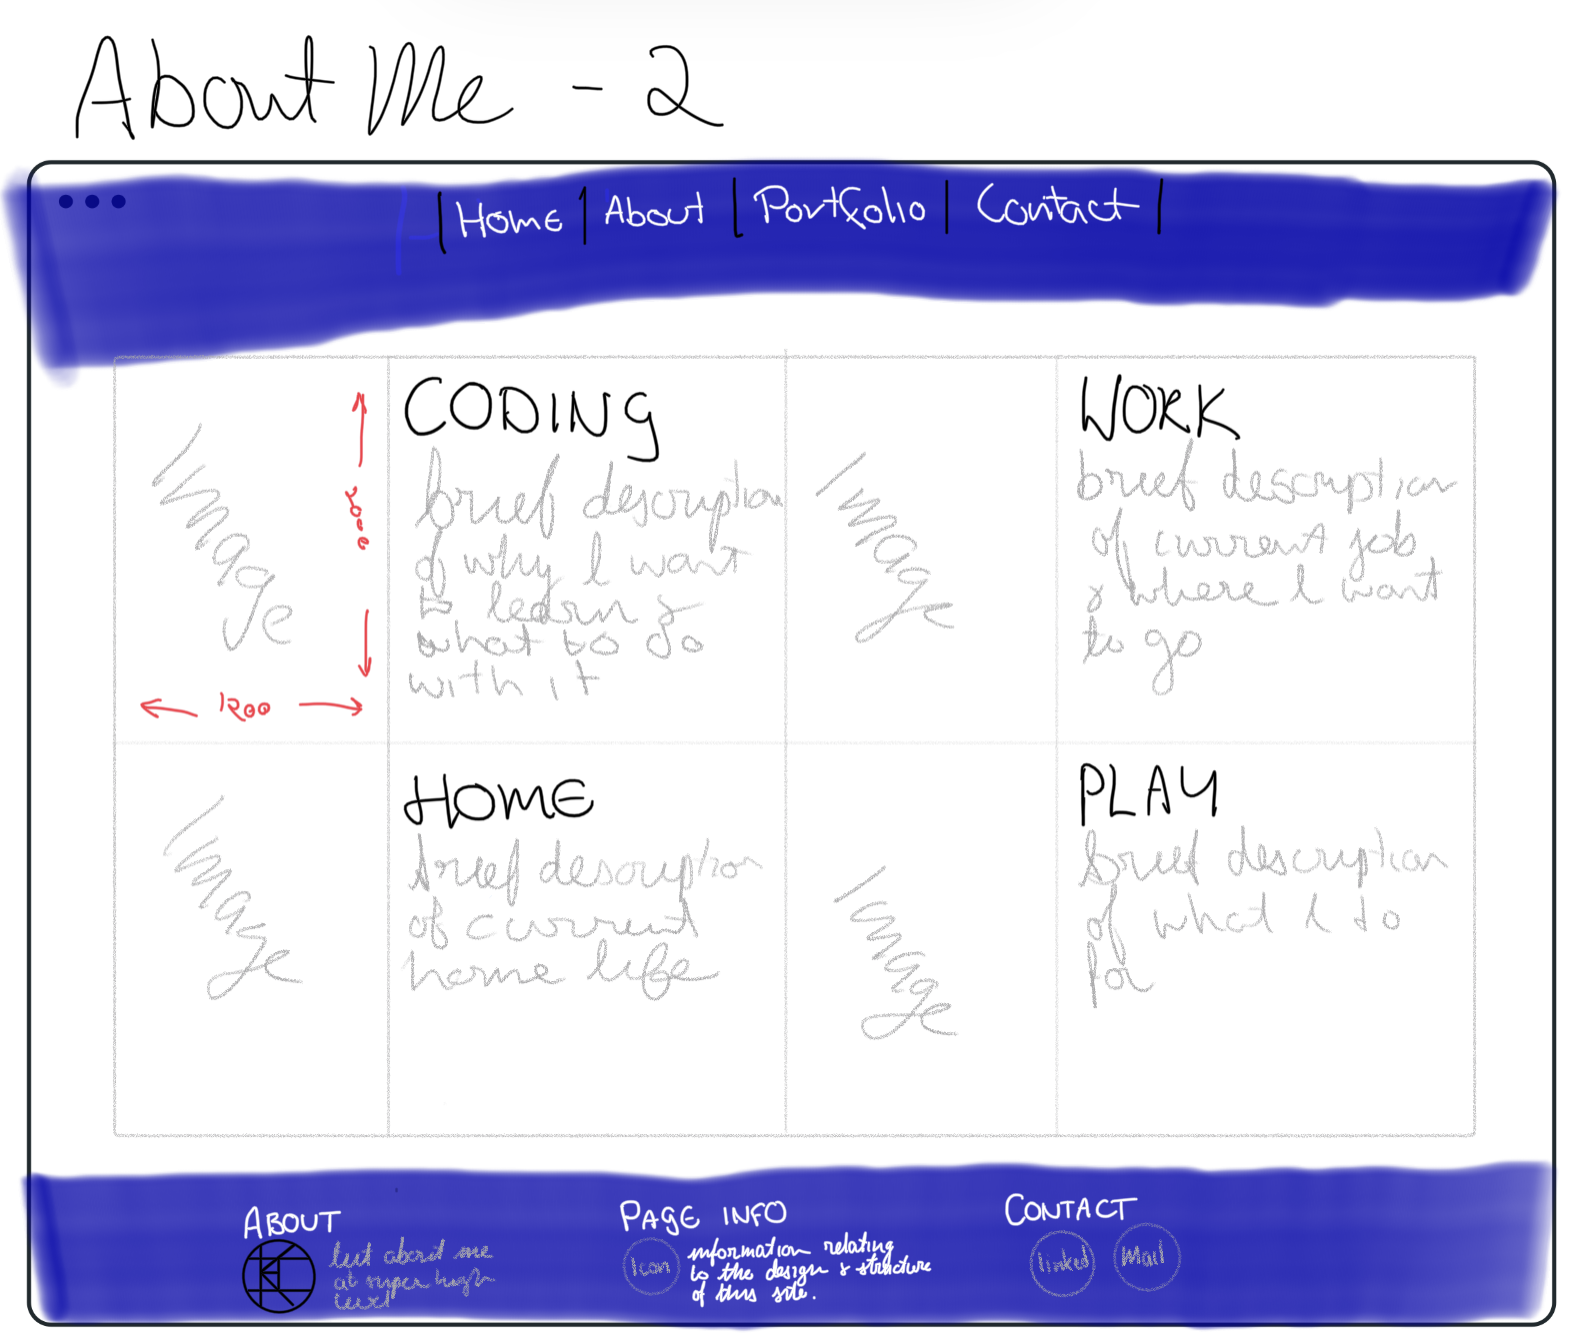 About Me - 2
Home | About | Portfolio | Contact
Image
2000
1200
CODING
brief description
of why I want
to learn &
what to do
with it
Image
WORK
brief description
of current job
& where I want
to go
Image
HOME
brief description
of current
home life
Image
PLAY
brief description
of what I do
for
ABOUT
about me
at super high
level
PAGE INFO
Icon
information relating
to the design & structure
of this site.
CONTACT
linked
Mail